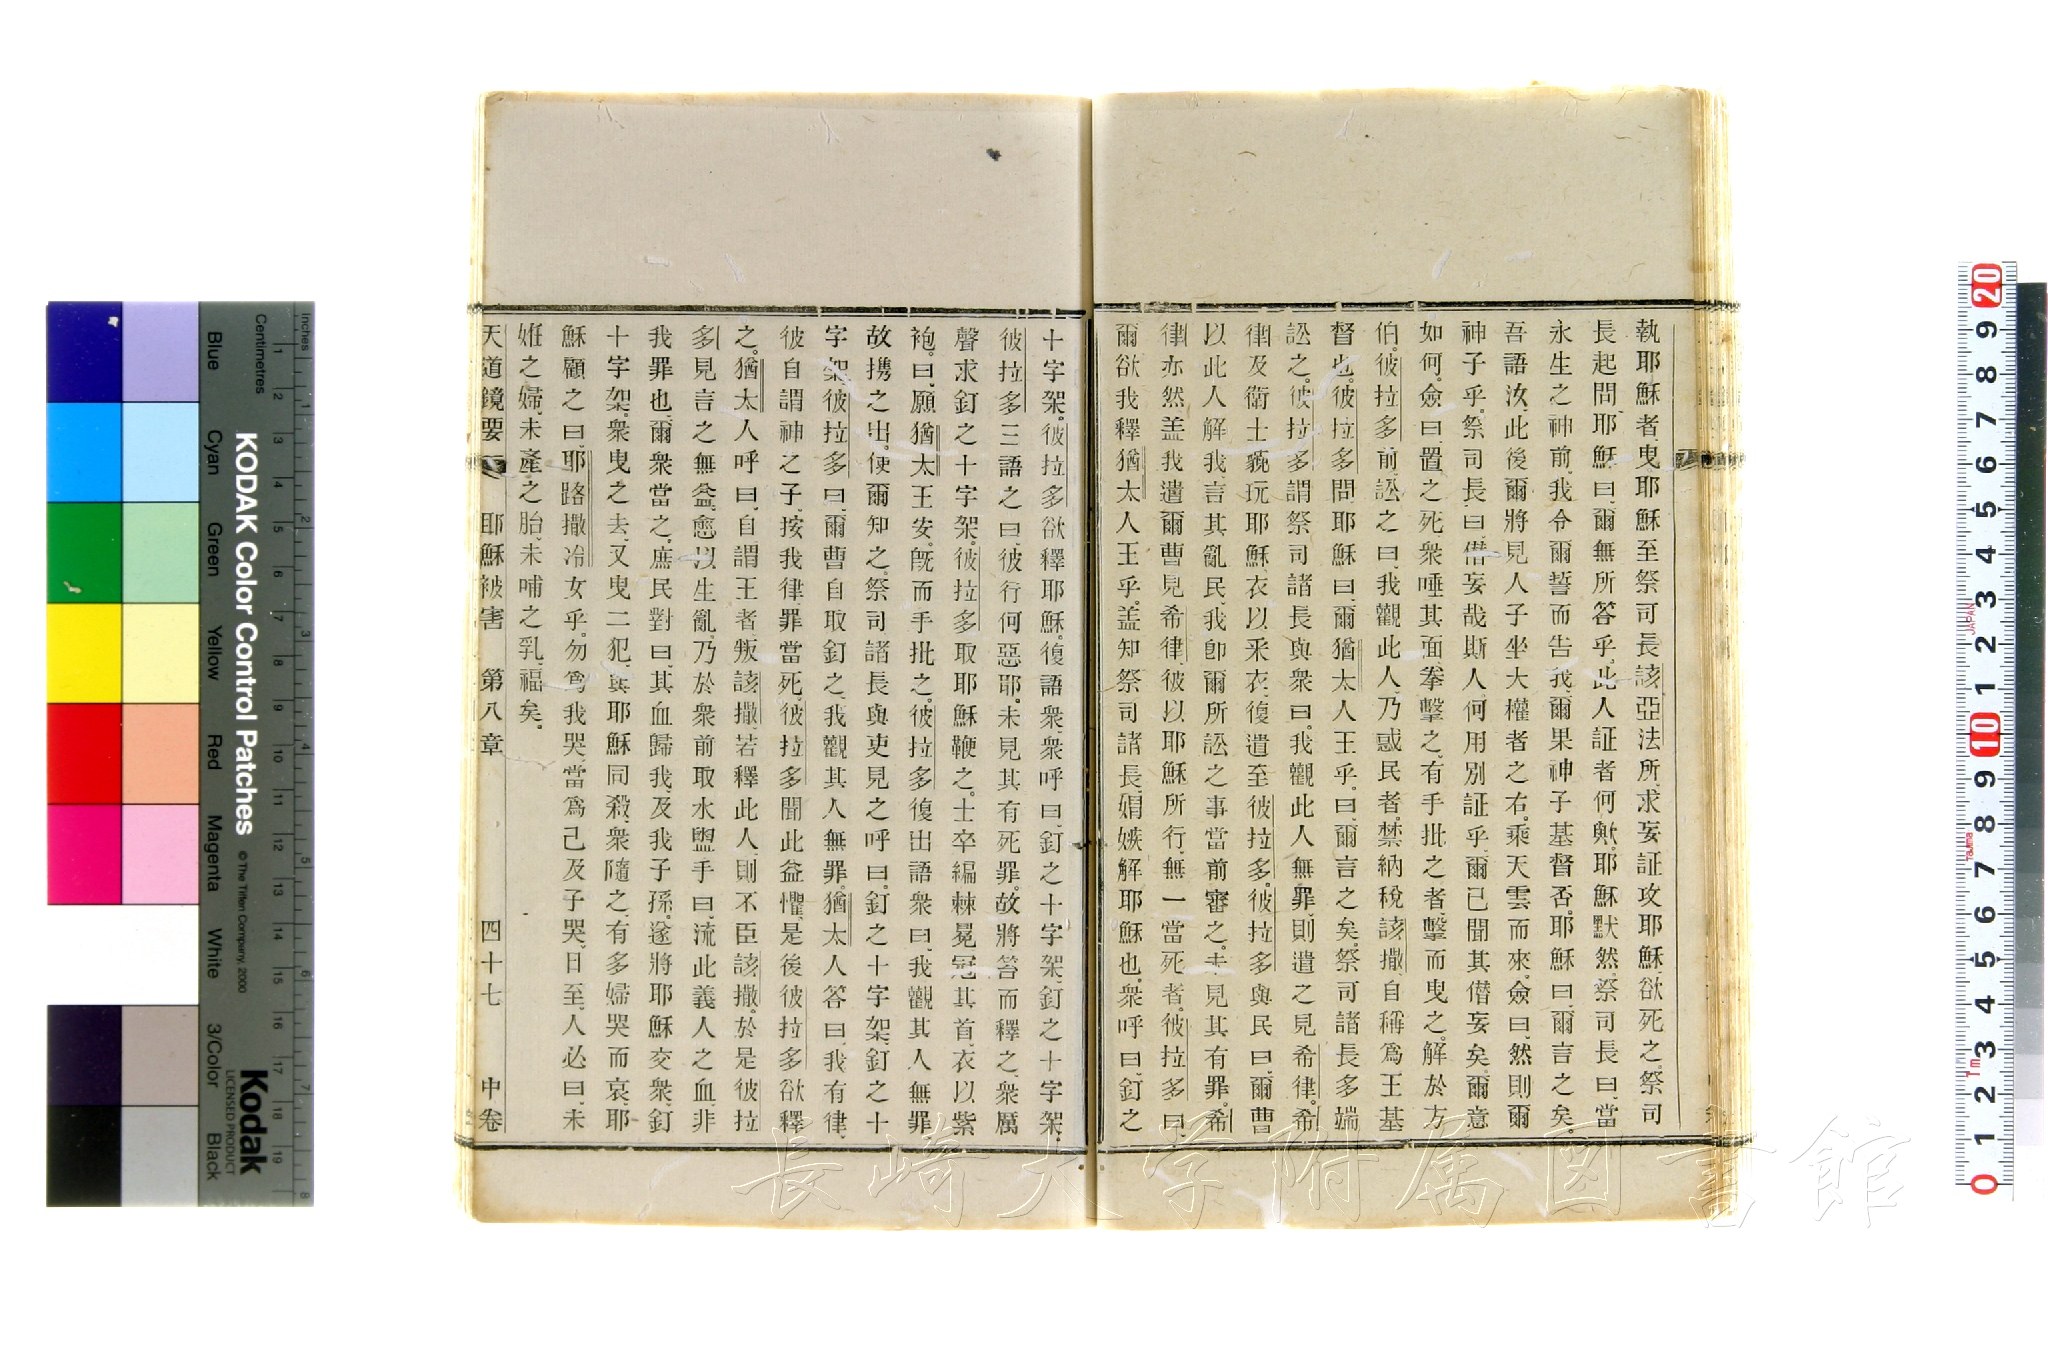 執耶穌者、曳耶穌至祭司長該亞法所、求妄証攻耶穌、欲死之、祭司
長起問耶穌曰、爾無所答乎、此人証者何歟、耶穌默然、祭司長曰、當
永生之神前、我令爾誓而告我、爾果神子基督否、耶穌曰、爾言之矣、
吾語汝、此後爾將見人子坐大權者之右、乘天雲而來、僉曰、然則爾
神子乎、祭司長曰、僭妄哉斯人、何用別証乎、爾已聞其僭妄矣、爾意
如何、僉曰、置之死、衆唾其面、拳擊之、有手批之者、擊而曳之、解於方
伯、彼拉多前、訟之曰、我觀此人、乃惑民者、禁納稅該撒、自稱為王基
督也、彼拉多問耶穌曰、爾猶太人王乎、曰、爾言之矣、祭司諸長多端
訟之、彼拉多謂祭司諸長與衆曰、我觀此人無罪、則遣之見希律、希
律及衛士藐玩耶穌、衣以釆衣、復遣至彼拉多、彼拉多與民曰、爾曹
以此人解我、言其亂民、我卽爾所訟之事、當前審之、未見其有罪、希
律亦然、盖我遣爾曹見希律、彼以耶穌所行、無一當死者、彼拉多曰、
爾欲我釋猶太人王乎、盖知祭司諸長、媢嫉解耶穌也、衆呼曰、釘之
十字架、彼拉多欲釋耶穌、復語衆、衆呼曰、釘之十字架、釘之十字架、
彼拉多三語之曰、彼行何惡耶、未見其有死罪、故將笞而釋之、衆厲
聲求釘之十字架、彼拉多取耶穌鞭之、士卒編棘冕冠其首、衣以紫
袍、曰、願猶太王安、旣而手批之、彼拉多復出語衆曰、我觀其人無罪
故携之出、使爾知之、祭司諸長與吏見之呼曰、釘之十字架、釘之十
字架、彼拉多曰、爾曹自取釘之、我觀其人無罪、猶太人答曰、我有律、
彼自謂神之子、按我律、罪當死、彼拉多聞此益懼、是後彼拉多欲釋
之、猶太人呼曰、自謂王者叛該撒、若釋此人、則不臣該撒、於是彼拉
多見言之無益、愈以生亂、乃於衆前取水盥手曰、流此義人之血、非
我罪也、爾衆當之、庶民對曰、其血歸我、及我子孫、遂將耶穌交衆、釘
十字架、衆曳之去、又曳二犯、與耶穌同殺、衆隨之、有多婦哭而哀、耶
穌顧之曰、耶路撒冷女乎、勿爲我哭、當爲己及子哭、日至、人必曰、未
姙之婦、未產之胎、未哺之乳、福矣。
天道鏡要 耶穌被害 第八章 四十七 中卷
長崎大学附属図書館
KODAK Color Control Patches
© The Tiffen Company, 2000
Kodak
LICENSED PRODUCT
Inches
Centimetres
Blue Cyan Green Yellow Red Magenta White 3/Color Black